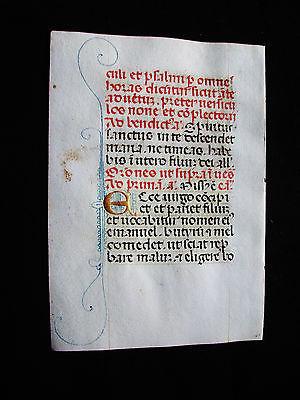 culi et psalmi p omnes
horas dicūtur sicut ante
adventū. preter versicu
los none et completorii
Ad benedictꝰ. a. Spiritus
sanctus in te descendet
maria. ne timeas. habe
bis i utero filiuꝫ dei. all'.
Oro nes ut supra i vesꝑis
Ad primā. a. Miss' ē. ca.
Ecce virgo cōcipi
et et pariet filiuꝫ
et vocabit' nomen ei'
emanuel. butyruꝫ et mel
comedet. ut sciat repro
bare maluꝫ et eligere bo